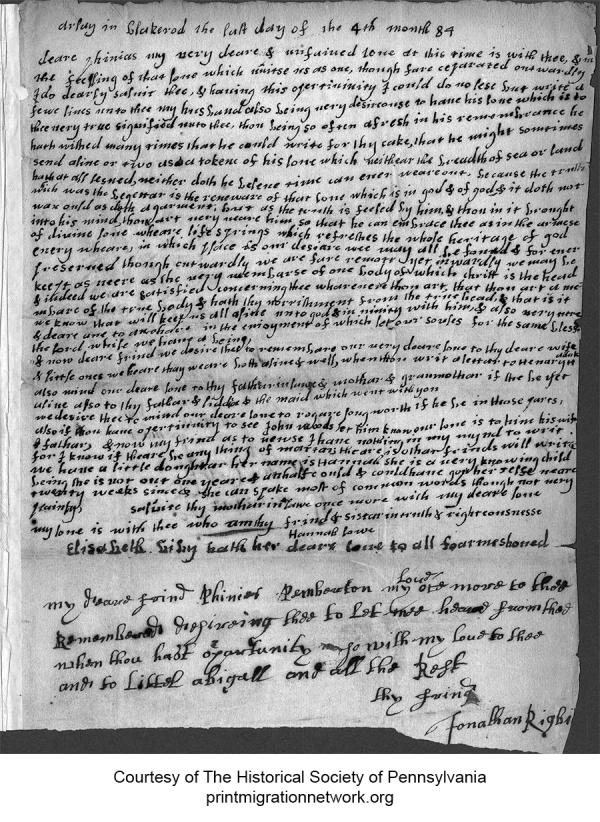 arlay in blakerod the last day of the 4th month 84
deare phinias my very deare & unfained love at this time is with thee, & in
the feelling of that love which unitse us as one, though fare ceparated outwardly
I do dearly salute thee, & haveing this opertiunity I could do no lese but write a
fewe lines unto thee my husband also being very desireouse to have his love which is to
thee very true signified unto thee, thou being so often afresh in his remembrance he
hath wished many times that he could write for thy cake, that he might somtimes
send a line or two as a a tokene of his love which neithear the breadth of sea or land
hath at all lesned, neither doth he beleve time can ever weare out. because the truth
which was the begettar is the renewere of that love which is in god & of god & it doth not
wax ould as doth a garment, but as the truth is feeled by him, & thou in it brought
into his mind, thou art very neare him, so that he can embrace thee as in the armese
of divine love wheare life springs which refreshes the whole heritage of god
every wheare, in which place is our desiare wee may all be found & for ever
preserved though outwardly we are fare remote yet inwardly we may be
keept as neere as the very membarse of one body of which christ is the head
& indeed we are satisfied concerning thee whareever thou art, that thou art a me
mbare of the true body & hath thy norrishment from the true head, & that is it
we know that will keep us all alive unto god & in unity with him, & also very nere
& deare one to anothare in the enioyment of which let our soules for the same bless
the lord while we have a being,
& now deare frind we desire thee to remembare our very deare love to thy deare wife
& little ones we heare thay weare both alive & well, when thou writ a lettar to Henary
also mind our deare love to thy father in lawe & mothar & granmothar if she be yet
alive also to thy fathar & & the maid which went with you
we desire thee to mind our deare love to rogare longworth if he be in those parts,
also if thou have opertiunity to see John woods let him know our love is to him & his wife
& fathar, & now my frind as to newse I have nothing in my mynd to writ
for I know if theare be any thing of mattar theare is othar frinds will writ
we have a little doughtar her name is Hannah she is a very knowing child
being she is not out one yeare & anhalfe ould & could have gon her selfe neare
twenty weeks since & she can spake most of common words though not very
plainly salute thy mothar in lawe once more with my deare love
my love is with thee who am thy frind & sistar in truth & rightousnesse
Hannah lowe
Elisabeth bisby hath her deare love to all foarmeshoned
my deare frind Phinies Pemberton my love
once more to thee
Remembered desireing thee to let mee heare from thee
when thou hast oportunity so with my love to thee
and to littel abigall and all the Rest
thy frind
Jonathan Righ
Courtesy of The Historical Society of Pennsylvania
printmigrationnetwork.org